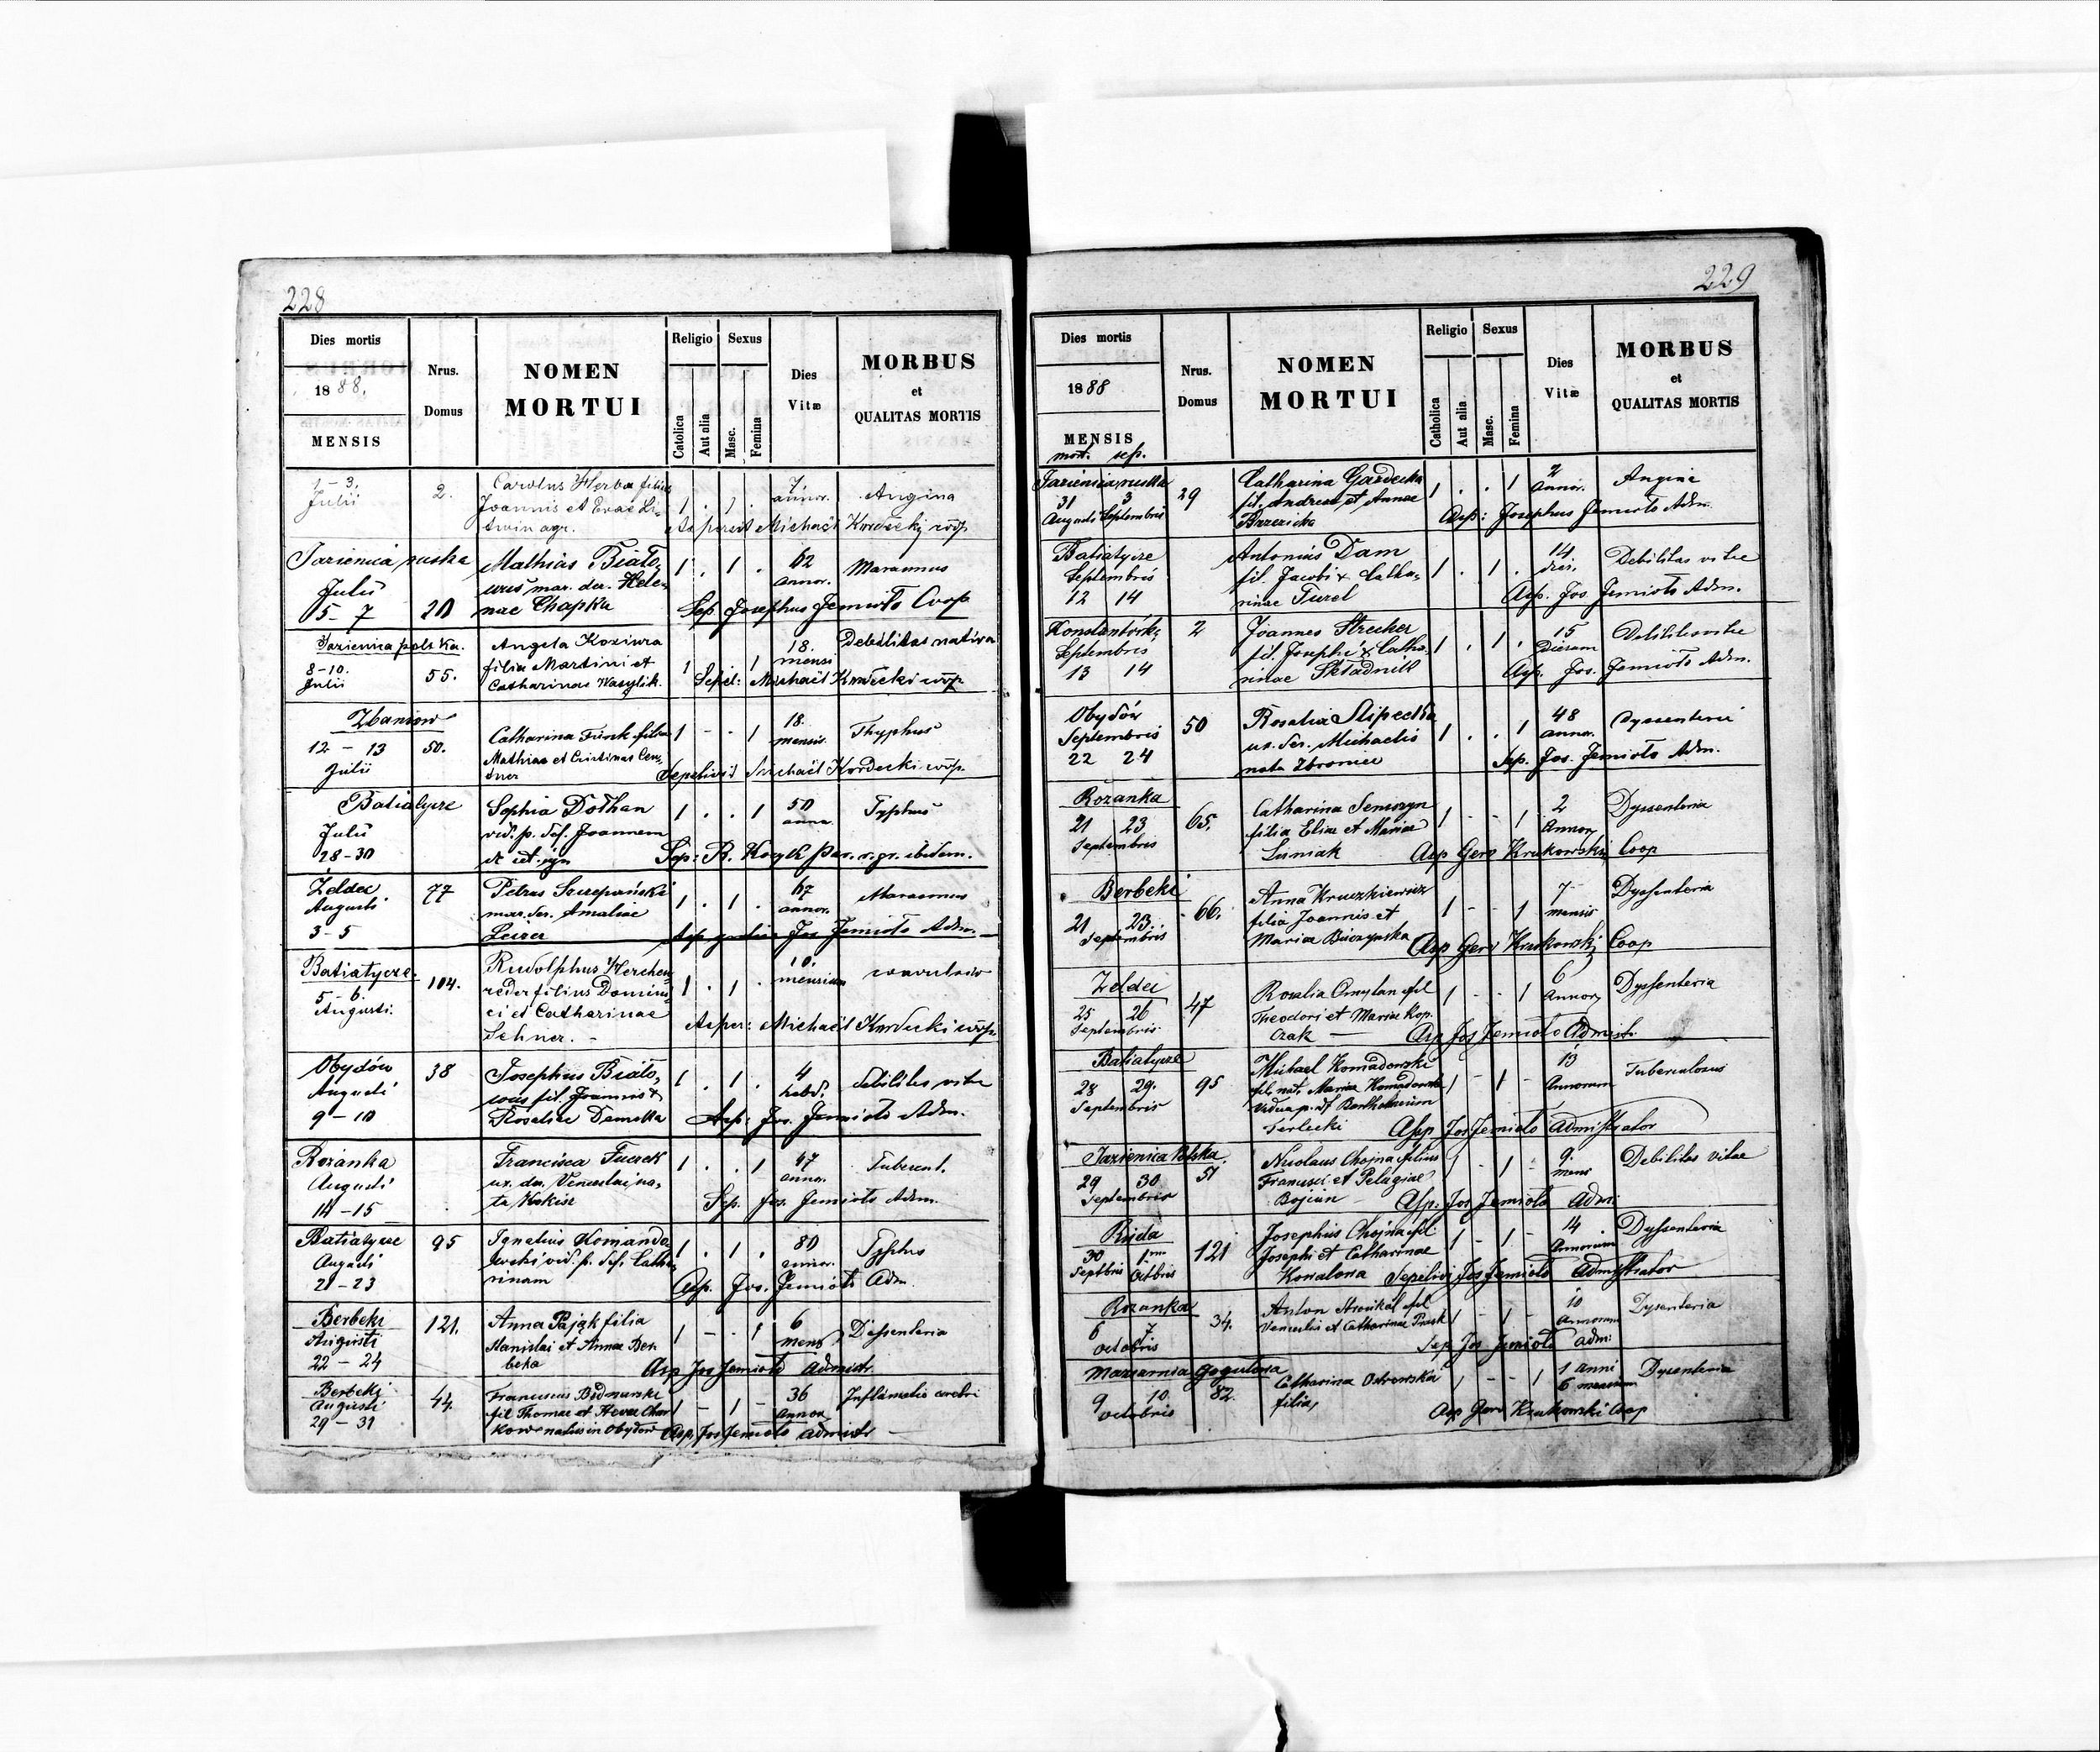 228
Dies mortis
1888.
MENSIS
Nrus.
Domus
NOMEN
MORTUI
Religio
Sexus
Catolica
Aut alia
Masc.
Femina
Dies
Vitæ
MORBUS
et
QUALITAS MORTIS
1-3.
Julii
2.
Carolus Herba filius
Joannis et Evae Li-
twin agr.
1 . 1 .
7
annor.
Angina
Aspersit Michaël Kordecki coop.
Jazienica ruska
Julii
5-7
20
Mathias Biało,
wus mar. der. Hele,
nae Chapka
1 . 1 .
62
annor.
Marasmus
Sep. Josephus Jemioło Coop
Jazienica polska.
8-10.
Julii
55.
Angela Koziura
filia Martini et
Catharinae Wasylik.
1 1
18.
mensi
Debilitas nativa
Sepel: Michaël Kordecki coop
Zbaniow
12 - 13
Julii
50.
Catharina Funk filia
Mathiae et Cristinae Cen,
dner
1 - . 1
18.
mensis.
Thyphus
Sepelivit Michaël Kordecki coop.
Batiatycze
Julii
28-30
Sophia Dołhan
vid. p. def. Joannem
1 . . 1
50
annor.
Typhus
Sep: R. par. r. gr. ibidem.
Żeldec
Augusti
3-5
77
Petrus Szczepański
mar. der. Amaliae
1 . 1 .
67
annor.
Marasmus
Jos Jemioło Adm.
Batiatycze.
5-6.
Augusti.
104.
Rudolphus Herchen,
reder filius Domini,
ci et Catharinae
Sehner. -
1 . 1 .
10.
mensium
Asper: Michaël Kordecki coop
Obydów
Augusti
9-10
38
Josephus Biało,
wus fil. Joannis &
Rosaliae
1 . 1 .
4
hebd.
debilitas vitae
Asp: Jos. Jemioło Adm.
Rozanka
Augusti
14-15
Francisca Fuczek
ux. der. Venceslai na,
ta
1 . . 1
47
annor.
Tubercul.
Sep. Jos. Jemioło Adm.
Batiatycze
Augusti
21-23
95
Ignatius Komando
wski vid. p. def. Catha,
rinam
1 . 1 .
80
annor.
Typhus
Asp. Jos. Jemioło Adm.
Berbeki
Augusti
22-24
121.
Anna Pająk filia
Stanislai et Annae Ber
beka
1 - . 1
6
mens
Dessenteria
Asp Jos Jemioło admistr
Berbeki
Augusti
29-31
44.
Franciscus Bednarski
fil Thomae et Hevae Char
kow natus in Obydow
1 - 1 -
36
annor
Inflamatio cerebri
Asp. Jos Jemioło admistr
229
Dies mortis
1888
MENSIS
mort. sep.
Nrus.
Domus
NOMEN
MORTUI
Religio
Sexus
Catholica
Aut alia
Masc.
Femina
Dies
Vitæ
MORBUS
et
QUALITAS MORTIS
Jazienica ruska
31 3
Augusti Septembris
29
Catharina Gardecka
fil. Andreae et Annae
Brzezicka
1 . . 1
2
annor.
Angina
Asp: Josephus Jemioło Adm.
Batiatycze
Septembris
12 14
Antonius Dam
fil. Jacobi & Catha,
rinae Turel
1 . 1 .
14.
dier.
Debilitas vitae
Asp. Jos. Jemioło Adm.
Konstantówk,
Septembris
13 14
2
Joannes Strecker
fil. Josephi & Catha,
rinae Składnik
1 . 1 .
15
Dierum
Debilitas vitae
Asp. Jos. Jemioło Adm.
Obydów
Septembris
22 24
50
Rosalia Slipecka
ux. der. Michaelis
nata
1 . . 1
48
annor.
Dyssenteria
Sep. Jos. Jemioło Adm.
Rozanka
21 23
Septembris
65.
Catharina Semczyn
filia Eliae et Mariae
Lisniak
1 - - 1
2
Annor,
Dyssenteria
Asp Gero Krukowski Coop
Berbeki
21 23.
Septembris
66.
Anna Kruczkiewicz
filia Joannis et
Mariae Buczynska
1 - - 1
7
mensis
Dyssenteria
Asp Gero Krukowski Coop
Zeldec
25 26
Septembris.
47
Rosalia Omylan fil
Theodori et Mariae Kop
czak
1 - - 1
6
Annor,
Dyssenteria
Asp Jos Jemioło Admistr.
Batiatycze
28 29.
Septembris
95
Michael Komadowski
fil. nat. Mariae Komadowska
vidua p. df Bartholomeum
Terlecki
1 - 1 -
13
Annorum
Tuberculosus
Asp Jos Jemioło Admistrator
Jazienica Polska.
29 30
Septembris
51
Nicolaus Chojna filius
Francisci et Pelagiae
Bojiun
1 - 1 -
9.
mens
Debilitas vitae
Asp. Jos Jemioło Adm:
Ruda
30 1ma
Septbris Octbris
121
Josephus Chojna fil
Josephi et Catharinae
Kowalowa
1 - 1 -
14
Annorum
Dyssenteria
Sepelivi Jos Jemioło Admistrator
Rozanka
6 7.
octobris
34.
Anton fil
Venceslii et Catharinae Prusk
1 - 1 -
10
Annorum
Dysenteria
Sep Jos Jemioło Adm:
9 10.
octobris
82.
Catharina Ostrowska
filia,
1 - - 1
1 anni
6 mensium
Dysenteria
Asp Gero Krukowski Coop